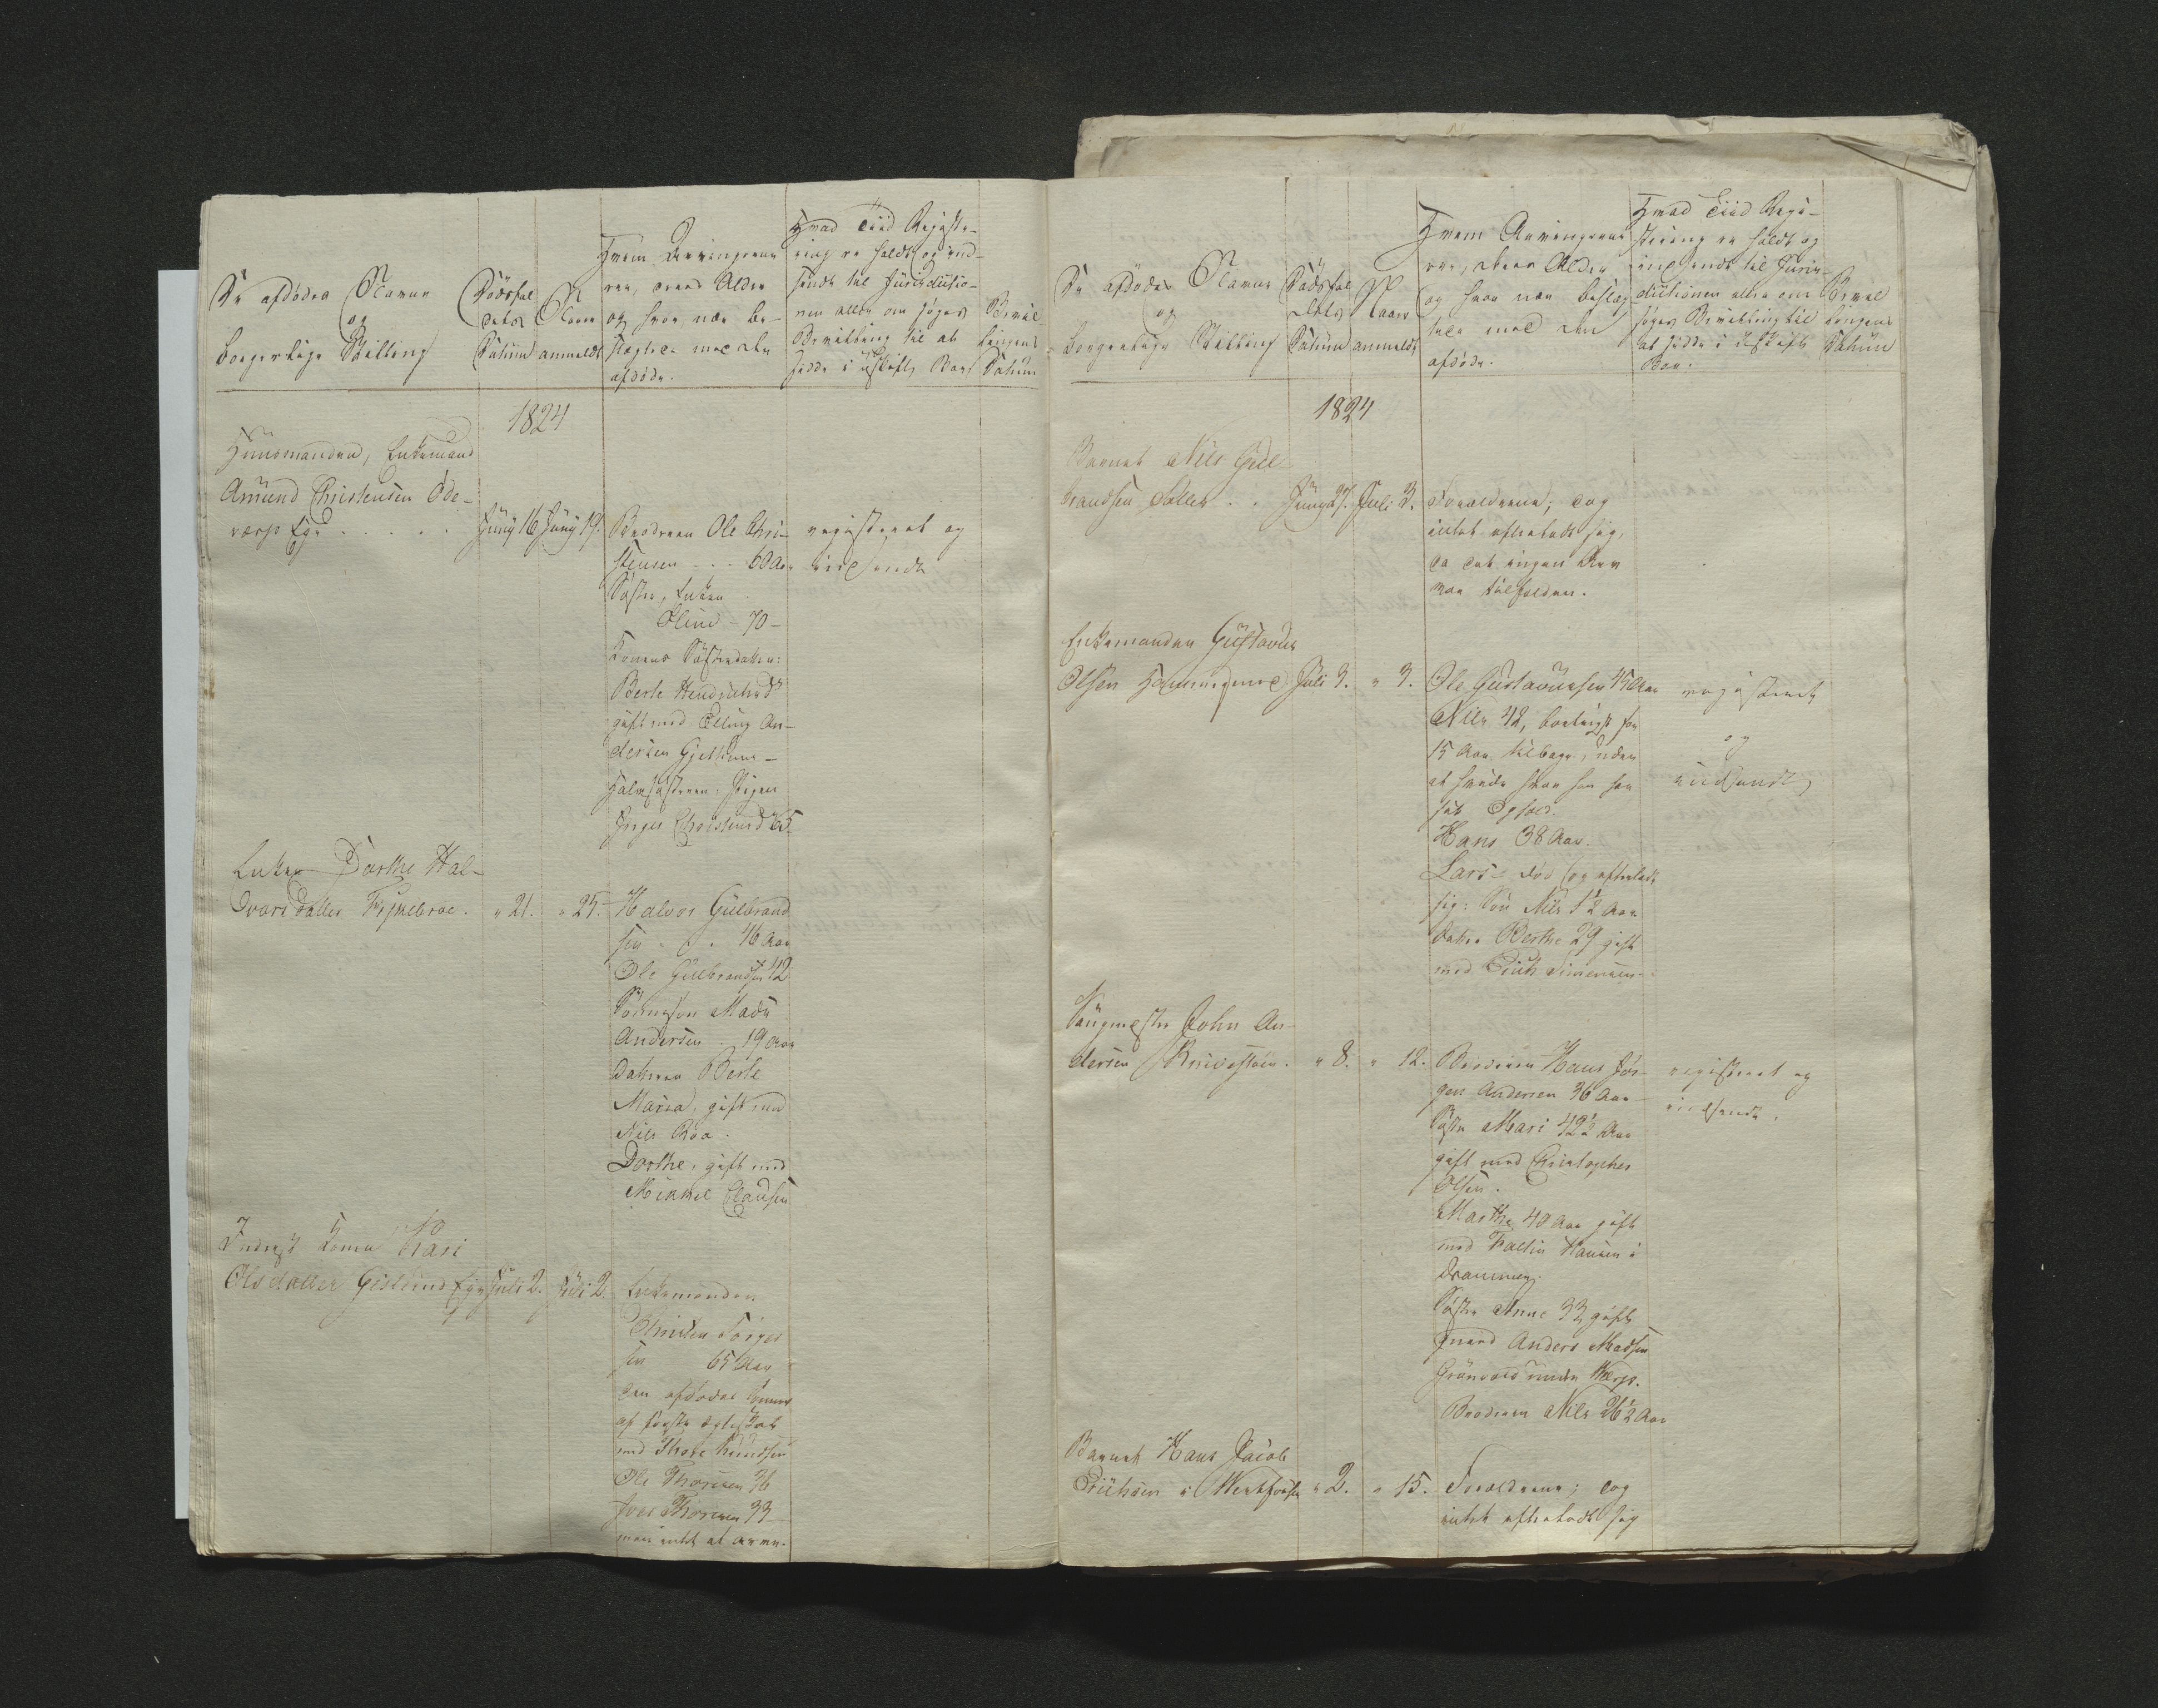 De afdødes Navne
og
borgerlige Stilling
Dødsfal
dets
Datum
Naar
anmeldt
Hvem Arvingerne
ere, deres Alder
og hvor nær be-
slægtede med den
afdøde.
Hvad Tiid Registe-
ring er holdt og ind-
sendt til Jurisdictio-
nen eller om søges
Bevilling til at
sidde i uskiftet Boe
Bevil-
lingens
Datum
1824
Huusmanden, Enkemand
Amund Christensen Øde-
værp Eger . . . . . Juny 16 Juny 19.
Broderen Ole Chri-
stensen - . . 60 Aar
Søster, Enken
Eline - 70 -
Konens Søsterdatter:
Berte Hendrichsd
gift med Elling An-
dersen Gjelhuus -
Halvsøsteren: Pigen
Inger Christensd 65.
registeret og
indsendt
Enken Dorthe Hal-
vorsdatter . „ 21. „ 25.
Halvor Gulbrand
sen . . . 46 Aar
Ole Gulbrandsen 42
Sønnesøn Mads
Andersen . 19 Aar
Datteren Berte
Maria, gift med
Nils Roa.
Dorthe, gift med
Mikkel Clausen
Inderst Konen Kari
Olsdatter Eger Juli 2. Juli 2.
Enkemanden
Christen Torger
sen 65 Aar
den afdødes Sønner
af første Ægteskab
med Thore Knudsen
Ole Thoresen 36
Iver Thoresen 33
men intet at arve.
De afdødes Navne
og
borgerlige Stilling
Dødsfal
dets
Datum
Naar
anmeldt
Hvem Arvingerne
ere, deres Alder
og hvor nær beslæg
tede med den
afdøde.
Hvad Tiid Regi-
stering er holdt og
indsendt til Juris-
dictionen eller om
søges Bevilling til
at sidde i uskiftet
Boe.
Bevil
lingens
Datum
1824
Barnet Nils Gul
brandsen Soller . . Juny 27. Juli 3.
Forældrene; dog
intet efterladt sig,
da det ingen Arv
var tilfalden.
Enkemanden Gustavus
Olsen Juli 3. „ 3.
Ole Gustavussen 45 Aar
Nils 42, bortreist for
15 Aar tilbage, uden
at vide hvor han har
sit Ophold.
Hans 38 Aar.
Lars død og efterladt
sig: Søn Nils 1½ Aar
Datter Berthe 29 gift
med Erich Simensen
registeret
og
indsendt
Saugmester John An-
dersen . „ 8. „ 12.
Broderen Hans Jør-
gen Andersen 36 Aar
Søster Mari 42½ Aar
gift med Christopher
Olsen.
Marthe 40 Aar gift
med Hansen i
Drammen.
Søster Anne 33 gift
med Anders Madsen
Grønvold under
Broderen Nils 26½ Aar
registeret og
indsendt.
Barnet Hans Jacob
Erichsen i Westfossen „ 2. „ 15.
Forældrene; dog
intet efterladt sig